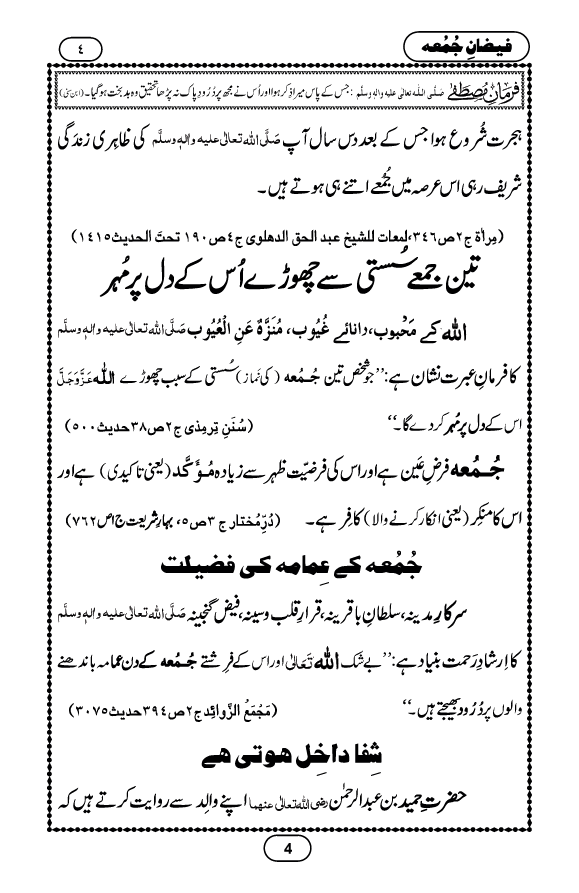 فیضانِ جُمُعہ
٤
فرمانِ مصطفےٰ صَلَّی اللہ تعالیٰ علیہ واٰلہٖ وسلَّم : جس کے پاس میرا ذکر ہوا اور اُس نے مجھ پر دُرُودِ پاک نہ پڑھا تحقیق وہ بد بخت ہو گیا۔ (ابن سنی)
ہجرت شُروع ہوا جس کے بعد دس سال آپ صَلَّی اللہ تعالیٰ علیہ واٰلہٖ وسلَّم کی ظاہری زندگی
شریف رہی اس عرصہ میں جُمُعے اتنے ہی ہوتے ہیں۔
(مِراٰة ج٢ص٣٤٦،لمعات للشیخ عبد الحق الدهلوی ج٤ص١٩٠ تحت الحدیث١٤١٥)
تین جمعے سُستی سے چھوڑے اُس کے دل پر مُہر
اللہ کے مَحبُوب، دانائے غُیُوب، مُنَزَّہٌ عَنِ الْعُیُوب صَلَّی اللہ تعالیٰ علیہ واٰلہٖ وسلَّم
کا فرمانِ عبرت نشان ہے: ’’جو شخص تین جُمُعہ (کی نماز) سُستی کے سبب چھوڑے اللہ عَزَّوَجَلَّ
اس کے دل پر مُہر کر دے گا۔‘‘ (سُنَنِ تِرمِذی ج٢ص٣٨حدیث٥٠٠)
جُمُعہ فرضِ عَین ہے اور اس کی فرضیّت ظہر سے زیادہ مُؤَکَّد (یعنی تاکیدی) ہے اور
اس کا منکِر (یعنی انکار کرنے والا) کافِر ہے۔ (دُرِّمُختار ج ٣ص٥، بہارِ شریعت ج١ص٧٦٢)
جُمُعہ کے عِمامہ کی فضیلت
سرکارِ مدینہ، سلطانِ باقرینہ، قرارِ قلب وسینہ، فیض گنجینہ صَلَّی اللہ تعالیٰ علیہ واٰلہٖ وسلَّم
کا اِرشادِ رَحمت بنیاد ہے: ’’بے شک اللہ تَعَالیٰ اور اس کے فرِشتے جُمُعہ کے دن عمامہ باندھنے
والوں پر دُرُود بھیجتے ہیں۔‘‘ (مَجْمَعُ الزَّوائِد ج٢ص٣٩٤حدیث٣٠٧٥)
شِفا داخِل ہوتی ہے
حضرتِ حمید بن عبدالرحمٰن رضی اللہ تعالیٰ عنہما اپنے والِد سے روایت کرتے ہیں کہ
4